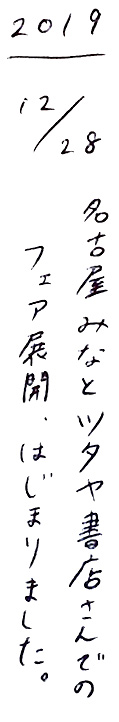 2019
12/28
名古屋みなとツタヤ書店さんでの
フェア展開、はじまりました。